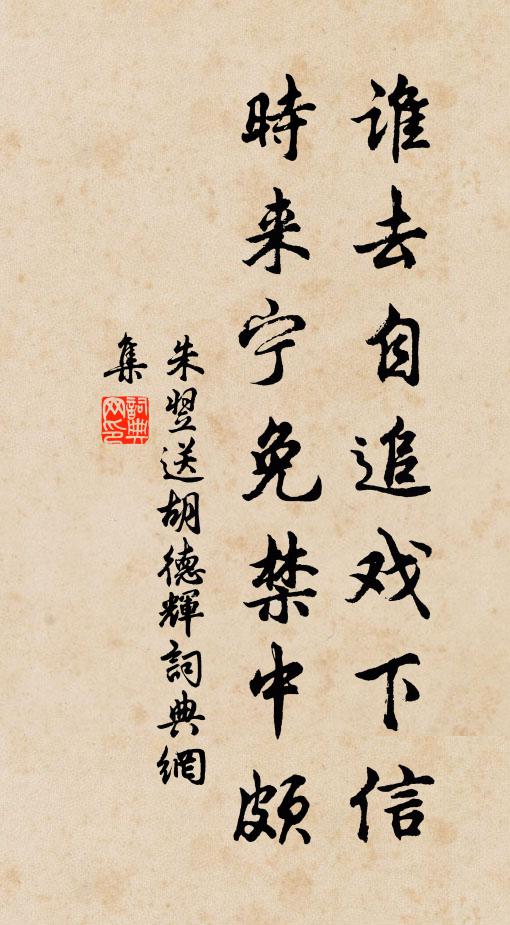 谁去自追戏下信
時来宁免禁中頗
朱翌送胡德輝詞典網
集
詞典
网印